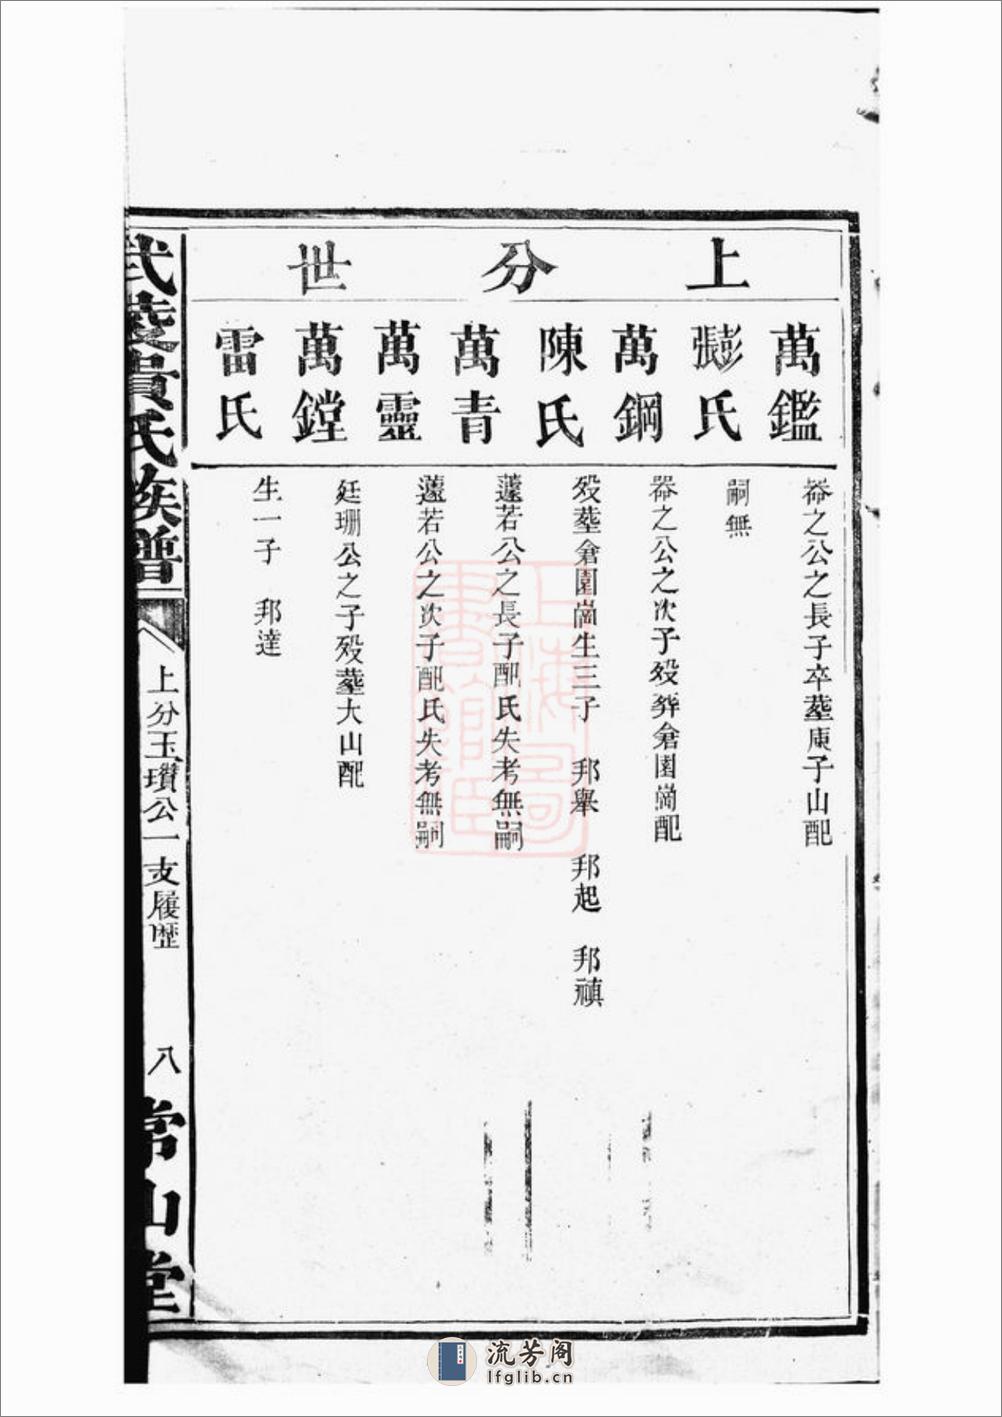 上分世
萬鑑
裕之公之長子卒塟庚子山配
彭張氏
嗣無
萬鋼
裕之公之次子歿葬倉園崗配
陳氏
歿塟倉園崗生三子 邦舉 邦起 邦禎
萬青
蘧若公之長子配氏失考無嗣
萬靈
蘧若公之次子配氏失考無嗣
萬鏜
廷珊公之子歿塟大山配
雷氏
生一子 邦達
武陵貴氏族譜
上分玉瓚公一支履歷
八
常山堂
上海圖書館藏
流芳阁
lfglib.cn